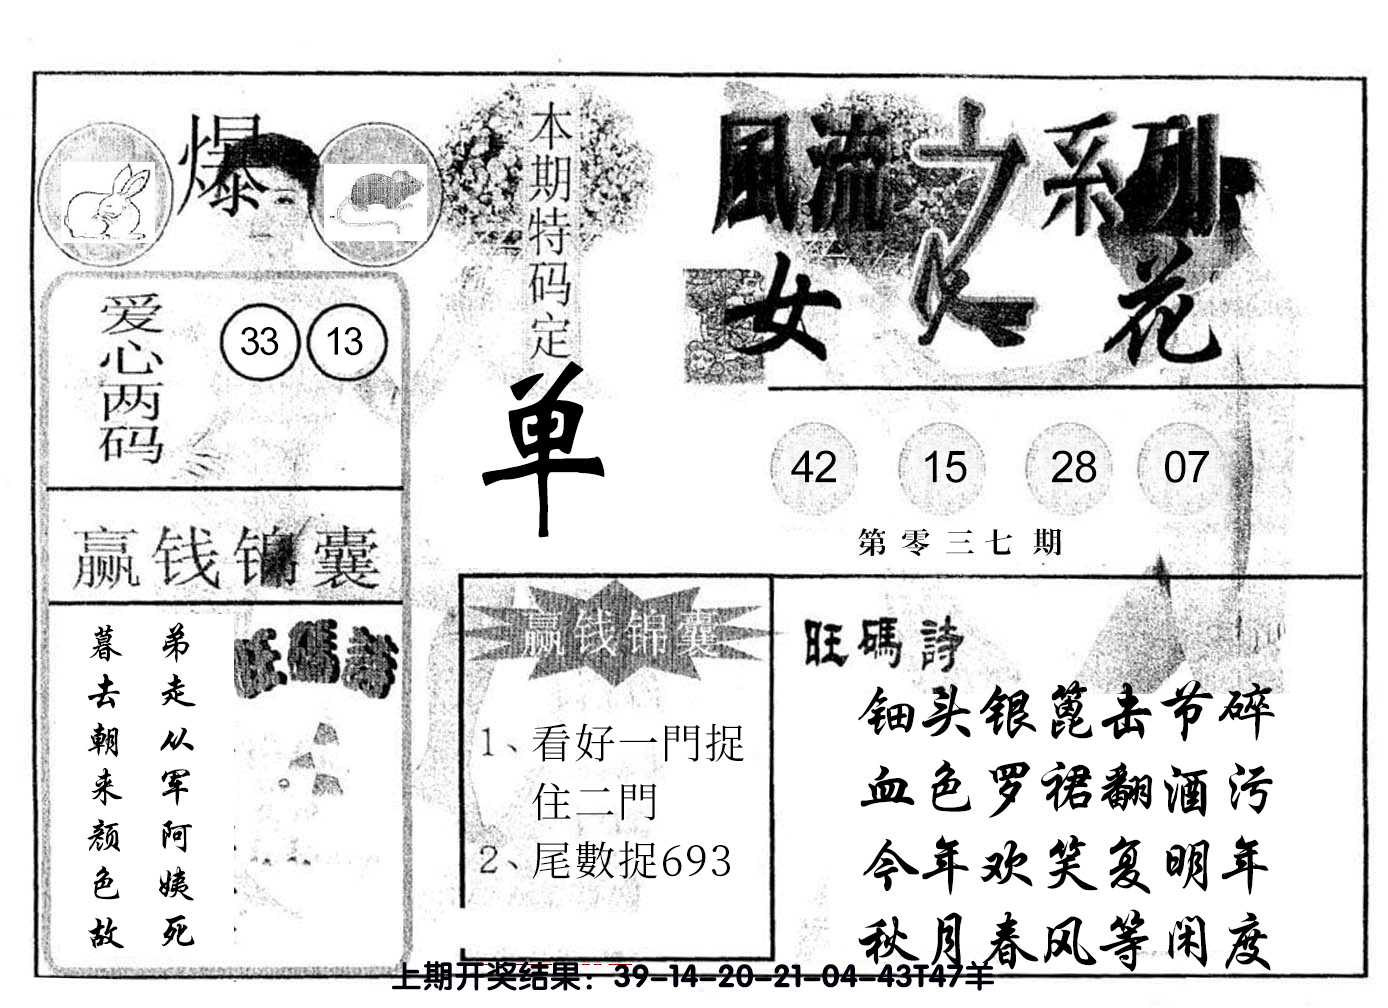 爆
本期特码定
单
風流之系列
女人花
爱心两码
33 13
42 15 28 07
第零三七期
赢钱锦囊
弟走从军阿姨死
暮去朝来颜色故
旺碼詩
赢钱锦囊
1、看好一門捉
住二門
2、尾數捉693
旺碼詩
钿头银篦击节碎
血色罗裙翻酒污
今年欢笑复明年
秋月春风等闲度
上期开奖结果：39-14-20-21-04-43T47羊